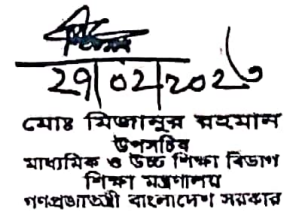 মোঃ মিজানুর রহমান
উপসচিব
মাধ্যমিক ও উচ্চ শিক্ষা বিভাগ
শিক্ষা মন্ত্রণালয়
গণপ্রজাতন্ত্রী বাংলাদেশ সরকার